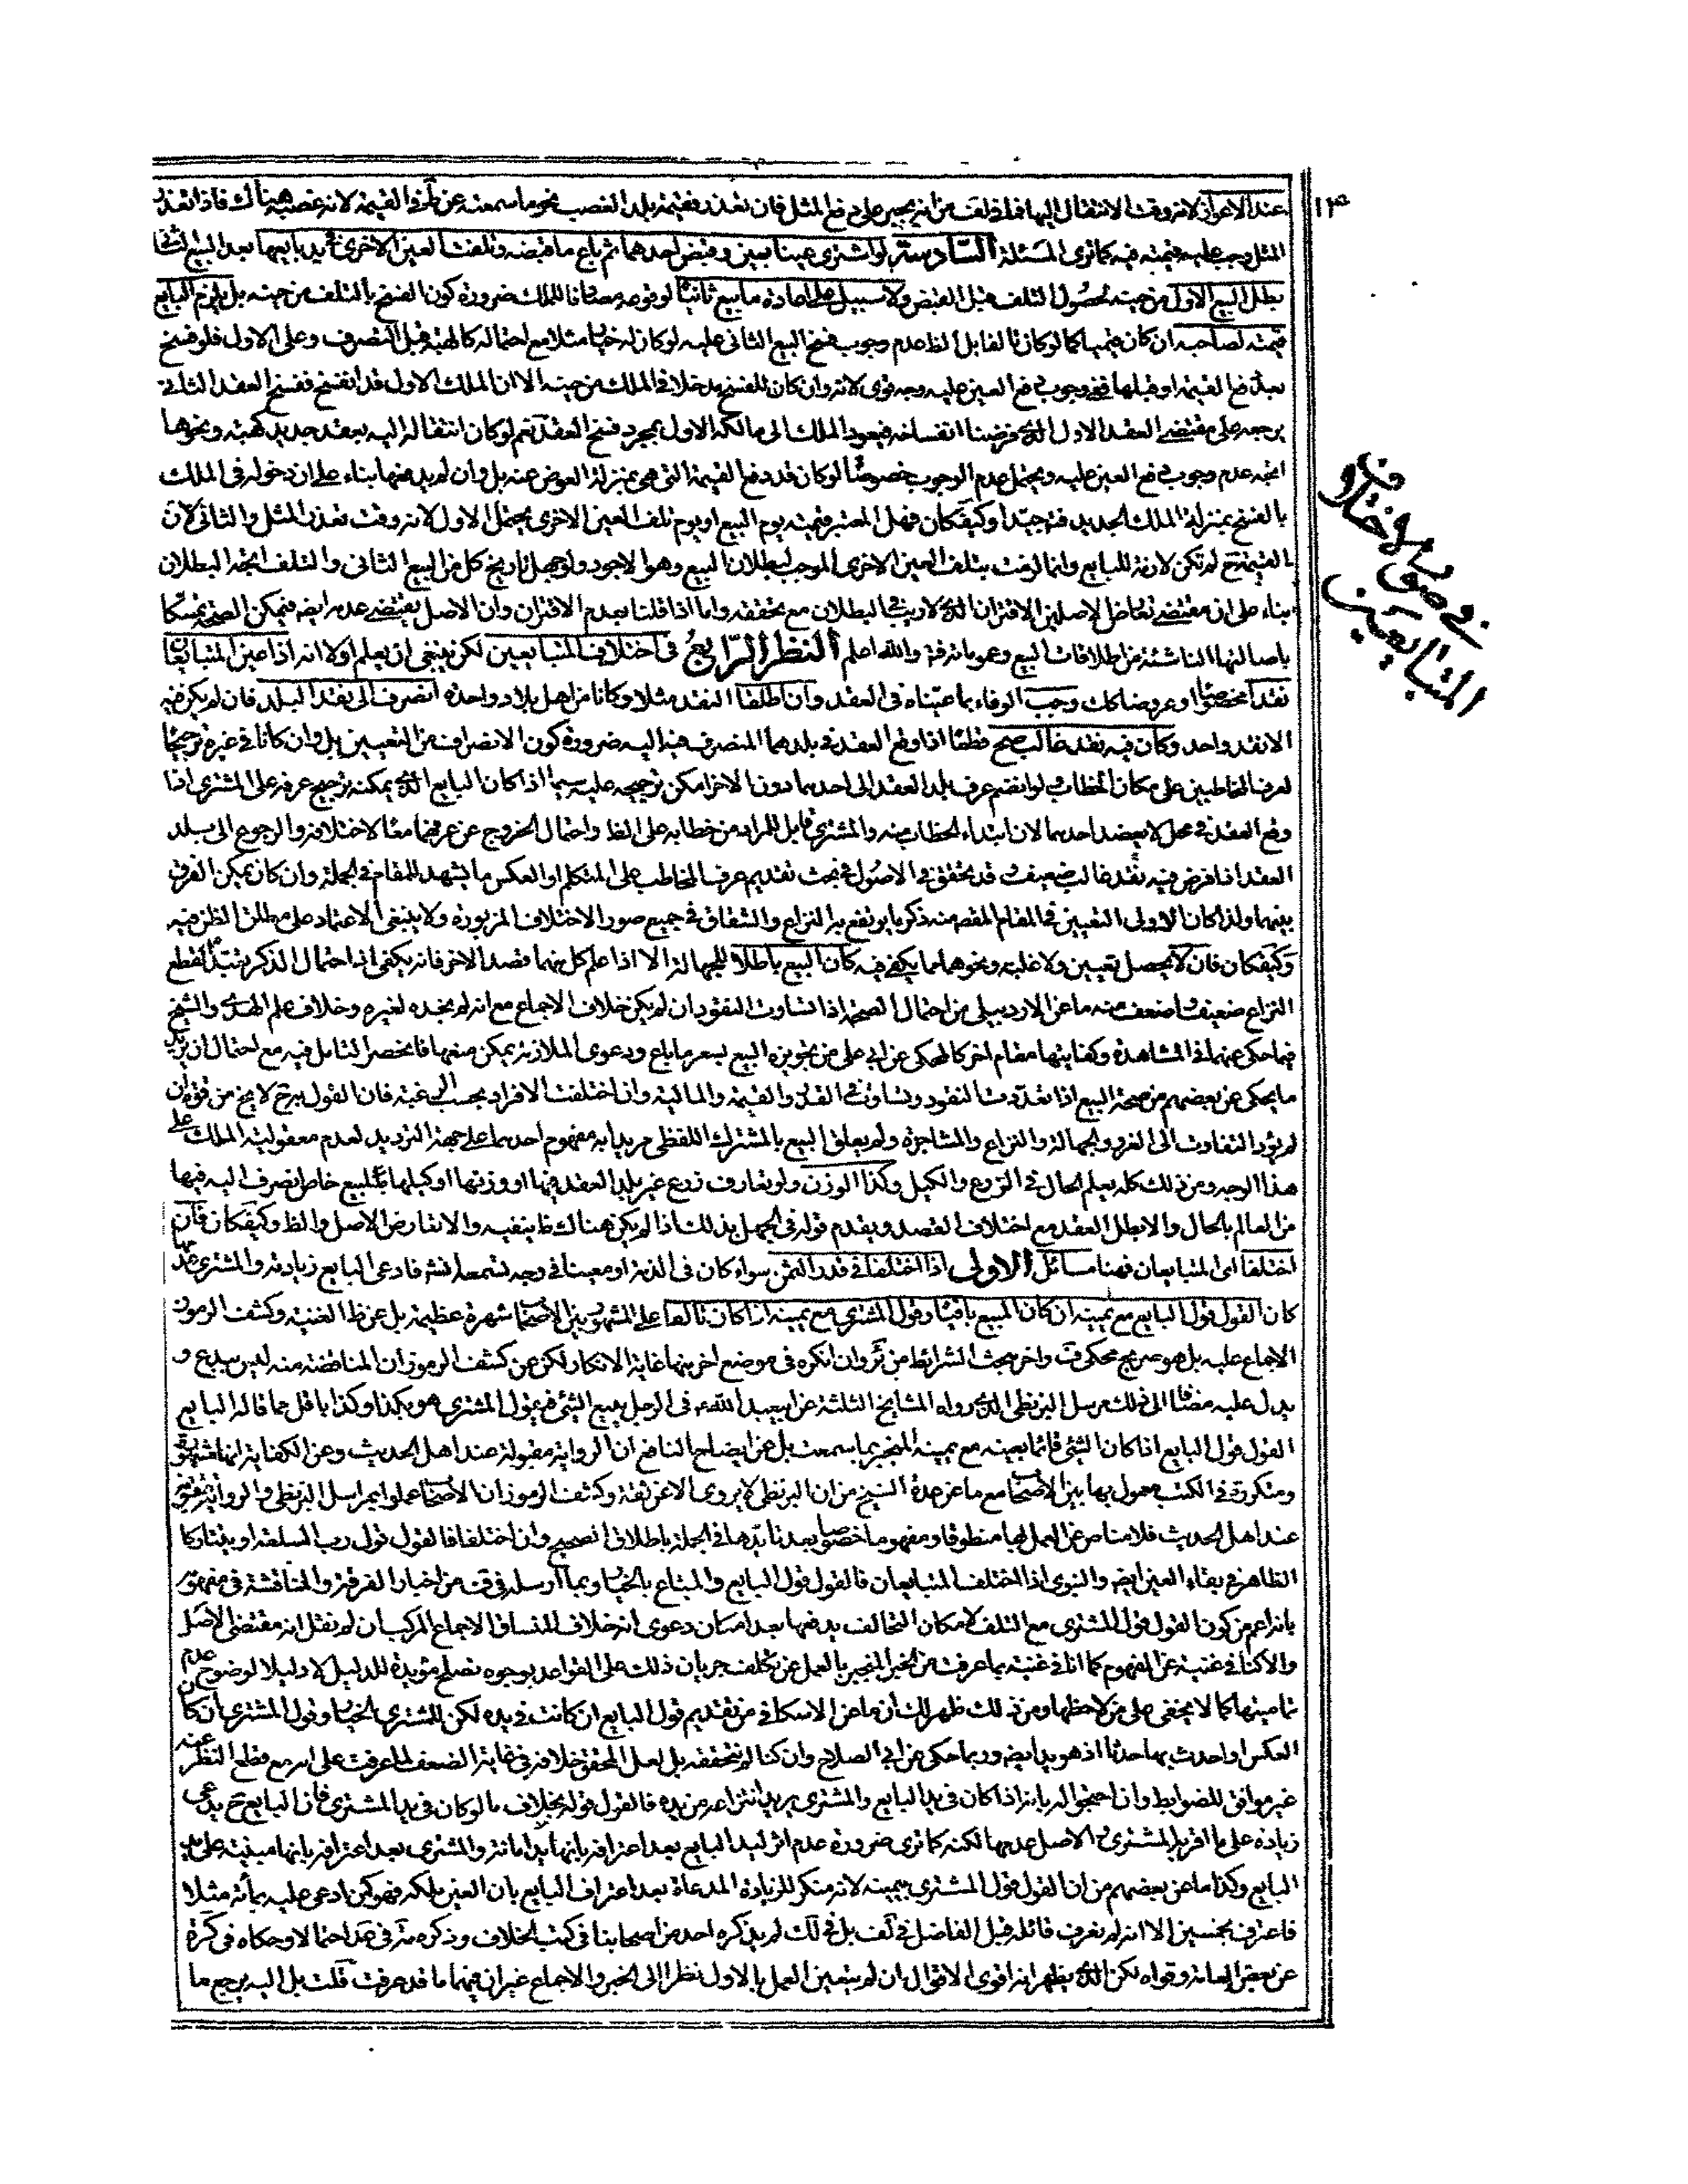 عند الاعواز لانه وقت الانتقال اليها فما في لف من انه يجبر على دفع المثل فان تعذر فقيمته بلد الغصب نحو ما سمعته عن في القيمة لانه غصبه هناك فاذا تعذر
المثل وجب عليه قيمته فيه كما ترى المسئلة السادسة لو اشترى عينا بعين وقبض احدهما ثم باع ما قبضه وتلفت العين الاخرى في يد بايعها بعد البيع الثاني
بطل البيع الاول من حينه لحصول التلف قبل القبض ولا سبيل على اعادة ما بيع ثانيا لوقوعه مصادفا للملك ضرورة كون الفسخ بالتلف من حينه بل يلزم البايع
قيمته لصاحبه ان كان قيميا كما لو كان تالفا بل الظ عدم وجوب فسخ البيع الثاني عليه لو كان له خيار مثلا مع احتماله كالهبة قبل التصرف وعلى الاول فلو فسخ
بعد دفع القيمة او قبلها ففي وجوب دفع العين عليه وجه قوى لانه وان كان للفسخ مدخلا في الملك من حينه الا ان الملك الاول قد انفسخ ففسخ العقد الثاني
يرجعه على مقتضى العقد الاول الذي فرضنا انفساخه فيعود الملك الى مالكه الاول بمجرد فسخ العقد نعم لو كان انتقاله اليه بعقد جديد كهبة ونحوها
اتجه عدم وجوب دفع العين عليه ويحتمل عدم الوجوب خصوصا لو كان قد دفع القيمة التى هى بمنزلة العوض عنه بل وان لم يدفعها بناء على ان دخوله فى الملك
بالفسخ بمنزلة الملك الجديد فته جيدا وكيفكان فهل المعتبر قيمته يوم البيع او يوم تلف العين الاخرى يحتمل الاول لانه وقت تعذر المثل والثانى لان
القيمة ح لم تكن لازمة للبايع وانما لزمت بتلف العين الاخرى الموجب لبطلان البيع وهو الاجود ولو جهل تاريخ كل من البيع الثانى والتلف اتجه البطلان
بناء على ان مقتضى تعارض الاصلين الاقتران الذي لا ريب في البطلان مع تحققه واما اذا قلنا بعدم الاقتران وان الاصل يقتضى عدمه ايضه فتمكن الصحة تمسكا
باصالتها الناشئة من اطلاقات البيع وعموماته فته والله اعلم النظر الرابع فى اختلاف المتبايعين لكن ينبغى ان يعلم اولا انه اذا عين المتبايعان
نقدا مخصوصا او عروضا كك وجب الوفاء بما عيناه فى العقد وان اطلقا النقد مثلا وكانا من اهل بلاد واحدة انصرف الى نقد البلد فان لم يكن فيه
الا نقد واحد وكان فيه نقد غالب صح قطعا اذا وقع العقد في بلدهما المنصرف فيه اليه ضرورة كون الانصراف من التعيين بل وان كانا في غيره ترجيحا
لعرف المخاطبين على مكان الخطاب لو انضم عرف بلد العقد الى احدهما دون الاخر امكن ترجيحه عليه سيما اذا كان البايع الذي يمكنه ترجيح عرفه على المشترى اذا
وقع العقد في محل لا يعضد احدهما لان ابتداء الخطاب منه والمشترى قابل للمراد من خطابه على الظ واحتمال الخروج عن عرفهما معا لاختلافه والرجوع الى بلد
العقد اذا فرض فيه نقد غالب ضعيف وقد تحقق في الاصول في بحث تقديم عرف المخاطب على المتكلم او العكس ما يشهد للمقام في الجملة وان كان يمكن الفرق
بينهما ولذا كان الاولى التعيين في المقام المقصد منه ذكر ما يرتفع به النزاع والشقاق في جميع صور الاختلاف المزبورة ولا ينبغى الاعتماد على مطلق الظن فيه
وكيفكان فان لا يحصل تعيين ولا غلبة ونحوهما مما يكفى فيه كان البيع باطلا للجهالة الا اذا علم كل منهما قصد الاخر فانه يكفى اذ احتمال الذكر لقطع
النزاع ضعيف واضعف منه ما عن الاردبيلى من احتمال الصحة اذا تساوت النقود ان لم يكن خلاف الاجماع مع انه لم نجده لغيره وخلاف علم الهدى والشيخ
فيما حكى عنهما فى المشاهدة وكفايتها مقام اخر كالمحكى عن ابى على من تجويزه البيع بسعر ما باع ودعوى الملازمة يمكن منعها فانحصر التامل فيه مع احتمال ان يريد
ما يحكى عن بعضهم من صحة البيع اذا تعددت النقود وتساوت في القدر والقيمة والمالية وان اختلفت الافراد بحسب الرغبة فان القول به ح لا يخ من قوة ان
لم يؤد التفاوت الى الغرر والجهالة والنزاع والمشاجرة ولم يعلق البيع بالمشترك اللفظى مريدا به مفهوم احدهما على جهة الترديد لعدم معقولية الملك على
هذا الوجه ومن ذلك كله يعلم الحال في الزروع والكيل وكذا الوزن ولو تعارف ذرع غير بلد العقد فيها او وزنها او كيلها بمبيع خاص انصرف اليه فيها
من العالم بالحال والا بطل العقد مع اختلاف القصد ويقدم قوله فى الجهل بذلك اذا لم يكن هناك ما ينفيه والا تعارض الاصل والظ وكيفكان فان
اختلفا اى المتبايعان فهنا مسائل الاولى اذا اختلفا في قدر الثمن سواء كان فى الذمة او معينا في وجه تسمعه انشه فادعى البايع زيادته والمشترى عدمها
كان القول قول البايع مع يمينه ان كان المبيع باقيا وقول المشترى مع يمينه ان كان تالفا على المشهور بين الاصحاب شهرة عظيمة بل عن ظ الغنية وكشف الرموز
الاجماع عليه بل هو صريح محكى ف واخر بحث الشرائط من ئر وان انكره فى موضع اخر منها غاية الانكار لكن عن كشف الرموز ان المناقضة منه ليس ببدع و
يدل عليه مضافا الى ذلك مرسل البزنطى الذي رواه المشايخ الثلثة عن ابيعبد الله ع فى الرجل يبيع الشئ فيقول المشترى هو بكذا وكذا باقل مما قاله البايع
القول قول البايع اذا كان الشئ قائما بعينه مع يمينه المنجبر بما سمعت بل عن ايضاح النافع ان الرواية مقبولة عند اهل الحديث وعن الكفاية انها مشهورة
ومتكررة فى الكتب معمول بها بين الاصحاب مع ما عن عدة الشيخ من ان البزنطى لا يروى الا عن ثقة وكشف الرموز ان الاصحاب عملوا بمراسل البزنطى والرواية
عند اهل الحديث فلا مناص عن العمل بها منطوقا ومفهوما خصوصا بعد تايدها في الجملة باطلاق الصحيح وان اختلفا فالقول قول رب السلعة او يتتاركا
الظاهر في بقاء العين ايضه والنبوى اذا اختلف المتبايعان فالقول قول البايع والمبتاع بالخيار وبما ارسله فى ف من اخبار الفرقة والمناقشة في مفهومه
بانه اعم من كون القول قول المشترى مع التلف لامكان التحالف يدفعها بعد امكان دعوى انه خلاف المنساق الاجماع المركب ان لم نقل انه مقتضى الاصل
والا كنا في غنية عن المفهوم كما انا في غنية بما عرفت من الخبر المنجبر بالعمل عن تكلف جريان ذلك على القواعد بوجوه تصلح مؤيدة للدليل لا دليلا لوضوح عدم
تماميتها كما لا يخفى على من لاحظها ومن ذلك ظهر لك ان ما عن الاسكافى من تقديم قول البايع ان كانت فى يده لكن للمشترى الخيار وقول المشترى ان كان
العكس او احدث بها حدثا اذ هو يد ايضه وربما حكى عن ابى الصلاح وان كنا لم نتحققه بل لعل المحقق خلافه في غاية الضعف لما عرفت على انه مع قطع النظر عنه
غير موافق للضوابط وان احتجوا له بانه اذا كان فى يد البايع والمشترى يريد انتزاعه من يده فالقول قوله بخلاف ما لو كان فى يد المشترى فان البايع ح يدعى
زيادة على ما اقر به المشترى والاصل عدمها لكنه كما ترى ضرورة عدم اثر ليد البايع بعد اعترافه بانها يد امانة والمشترى بعد اعترافه بانها مبنية على يد
البايع وكذا ما عن بعضهم من ان القول قول المشترى بيمينه لانه منكر للزيادة المدعاة بعد اعتراف البايع بان العين ملكه فهو كمن ادعى عليه بمأة مثلا
فاعترف بخمسين الا انه لم نعرف قائله قبل الفاضل في لف بل في لك لم يذكره احد من اصحابنا فى كتب الخلاف وذكره ثر فى عد احتمالا وحكاه فى كرة
عن بعض العامة وقواه لكن الذي يظهر انه اقوى الاقوال ان لم يتعين العمل بالاول نظرا الى الخبر والاجماع غير ان فيهما ما قد عرفت قلت بل اليه يرجع ما
فى صور اختلاف
المتبايعين